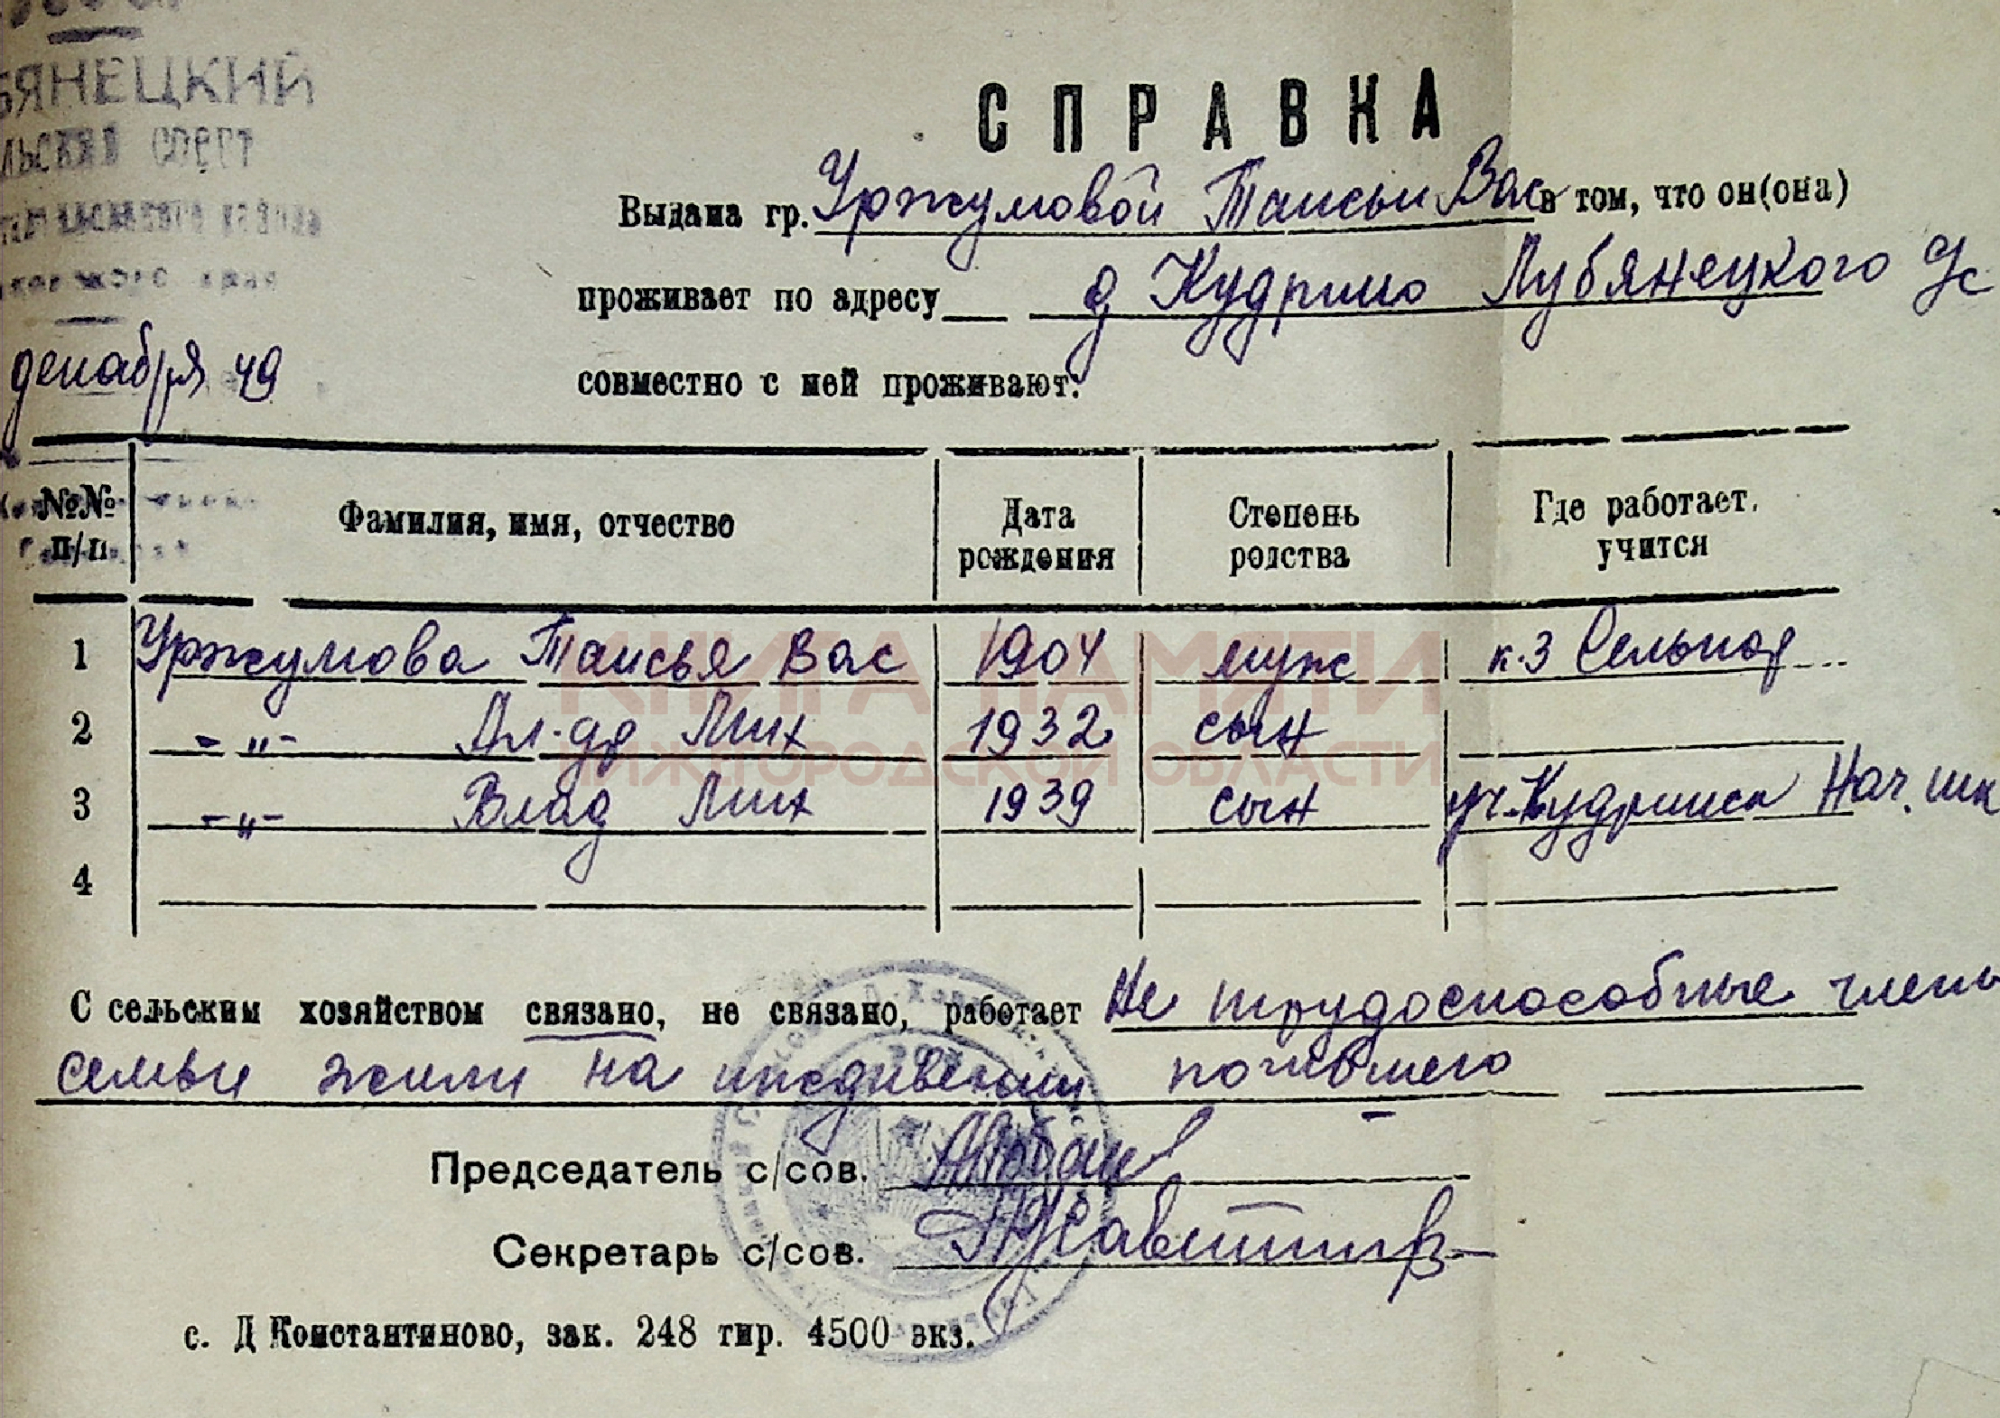 БЯНЕЦКИЙ
ЛЬСКИЙ СОВЕТ
района
декабря 49
СПРАВКА
Выдана гр. Уржумовой Таисьи Вас в том, что он(она)
проживает по адресу д Кудрино Лубянецкого
совместно с ней проживают:
№№ п/п
Фамилия, имя, отчество
Дата рождения
Степень родства
Где работает, учится
1 Уржумова Таисья Вас 1904 муж к-з Сельпар
2 -"- Ал-др Мих 1932 сын
3 -"- Влад Мих 1939 сын уч. Кудринск Нач. шк
4
КНИГА ПАМЯТИ
НИЖЕГОРОДСКОЙ ОБЛАСТИ
С сельским хозяйством связано, не связано, работает Не трудоспособные члены
семьи жили на иждивении погибшего
Председатель с/сов.
Секретарь с/сов.
с. Д Константиново, зак. 248 тир. 4500 экз.